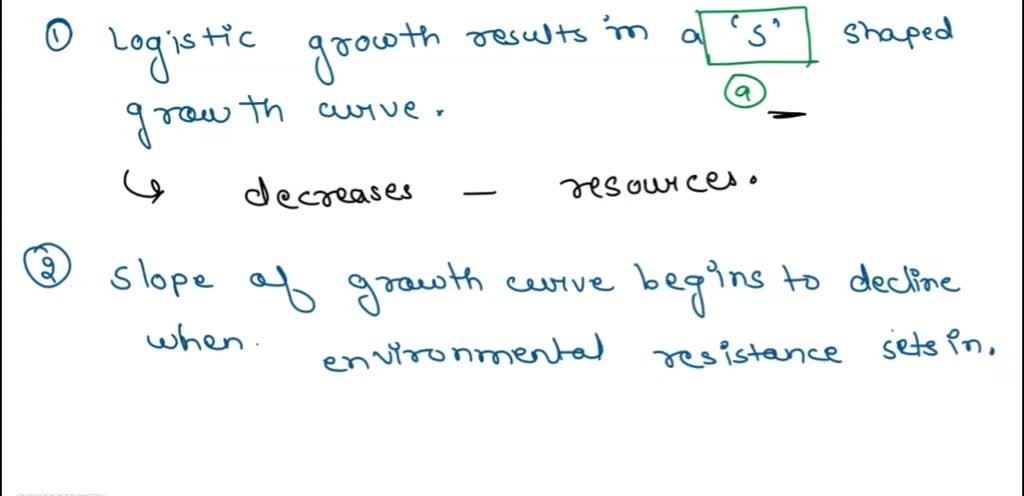 ① Logistic growth results in a 's' shaped
growth curve.
ⓐ
↳ decreases — resources.
② slope of growth curve begins to decline
when environmental resistance sets in.